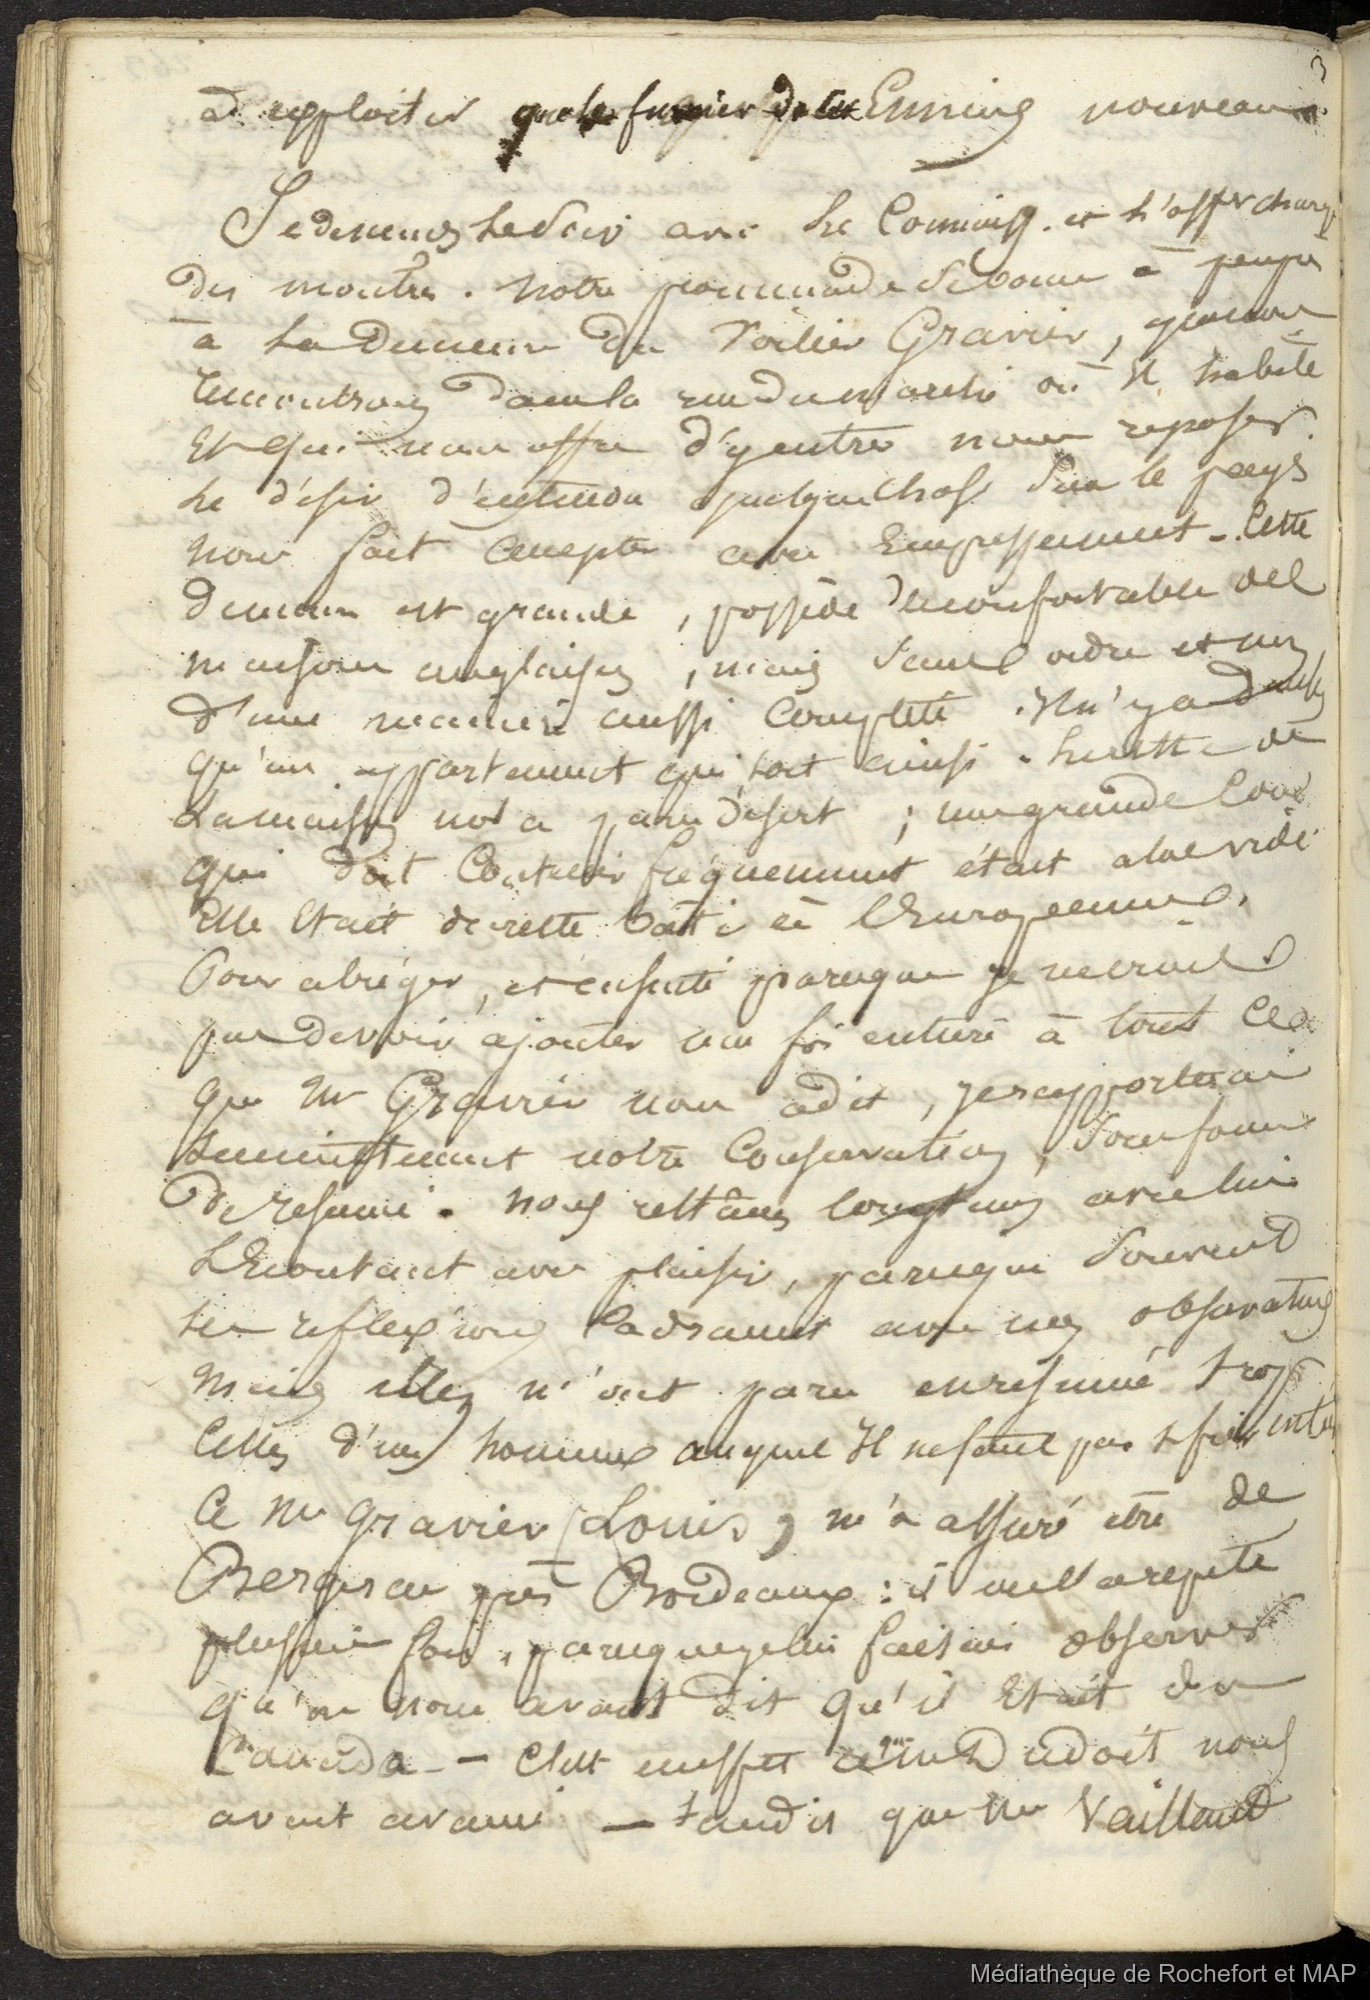 3
a exploiter nouveau
Je descends le soir avec le Commiss. et l'offer chargé
des montres. Notre promenade se borne à peu près
à la demeure du Voilier Gravier, que nous
rencontrons dans la rue du marché où Il habite
Et qui nous offre d'y entrer nous reposer.
Le désir d'entendre quelque chose sur le pays
nous fait accepter avec Empressement - Cette
demeure est grande, possède le confortable des
maisons anglaises, mais sans ordre et non
d'une manière aussi complette. Il n'y a d'ailleurs
qu'un appartement qui soit ainsi. Le reste de
La maison nous a paru désert ; une grande Cour
qui doit Contenir fréquemment était alors vide
Elle Etait de reste bâtie à l'Européenne.
Pour abréger, et ensuite parceque je ne crois
pas devoir ajouter une foi entière à tout Ce
que Mr Gravier nous a dit, je rapporterai
maintenant notre Conservation, sous forme
de resumé. Nous restâmes longtems avec lui
L'Ecoutant avec plaisir, parceque souvent
ses reflexions Cadraient avec mes observations
mais elles m'ont paru en resumé trop
Celles d'un homme auquel Il ne faut pas se fier
Ce Mr Gravier (Louis) m'a assuré être de
Bergerac près Bordeaux : il me l'a repeté
plusieurs fois, parceque je lui faisais observer
qu'on nous avait dit qu'il Etait du
Canada - C'est en effet ce que nous
avait - tandis que Mr Vaillant
Médiathèque de Rochefort et MAP